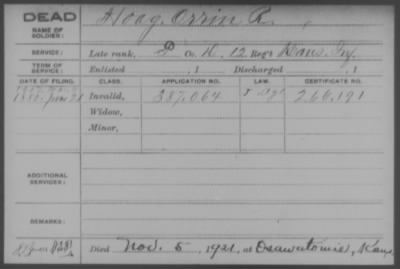 DEAD
NAME OF SOLDIER:
Hoag, Orrin R.
SERVICE:
Late rank, Co. H, 12 Reg't Kans. Inf.
TERM OF SERVICE:
Enlisted , 1 Discharged , 1
DATE OF FILING. CLASS. APPLICATION NO. LAW. CERTIFICATE NO.
Invalid, 387,064 266,191
Widow,
Minor,
ADDITIONAL SERVICES:
REMARKS:
Died Nov. 5, 1921, at Osawatomie, Kans